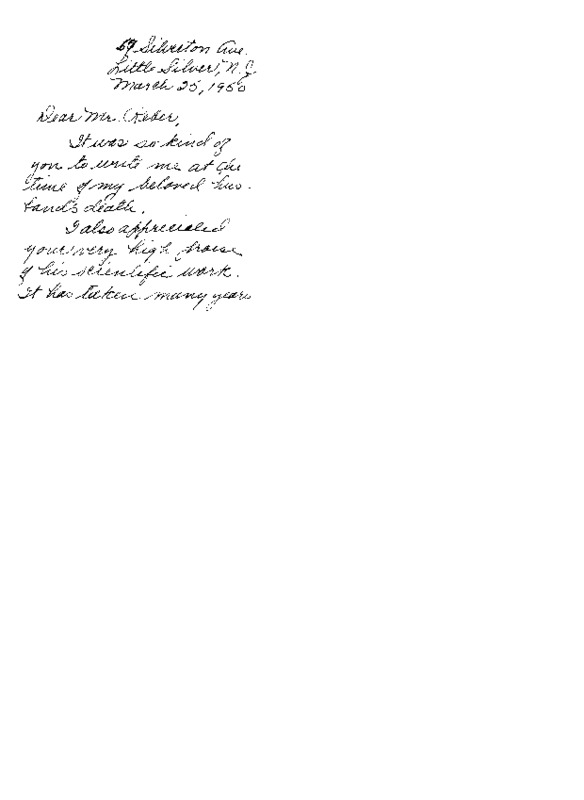 59 Silverton Ave.
Little Silver, N.J.
March 25, 1956
Dear Mr. Weber,
It was so kind of
you to write me at the
time of my beloved hus-
band's death.
I also appreciated
your very high praise
of his scientific work.
It has taken many years